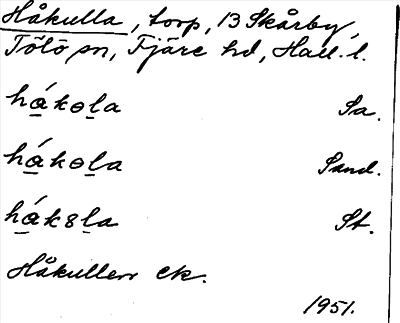 Håkulla, torp, 13 Skårby,
Tölö sn, Fjäre hd, Hall. l.
hákola Sa.
hákola Sand.
hák8la St.
Håkullen ek.
1951.